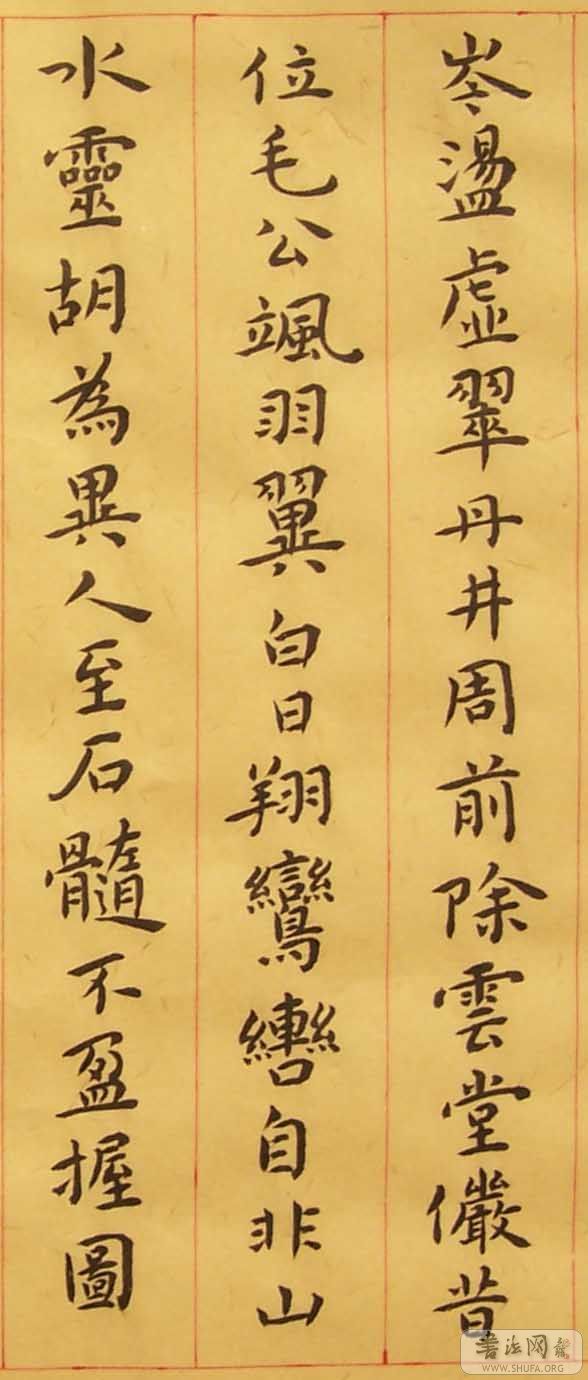 岑盪虛翠丹井周前除雲堂儼昔
位毛公颯羽翼白日翔鸞轡自非山
水靈胡為異人至石髓不盈握圖
書法网
WWW.SHUFA.ORG